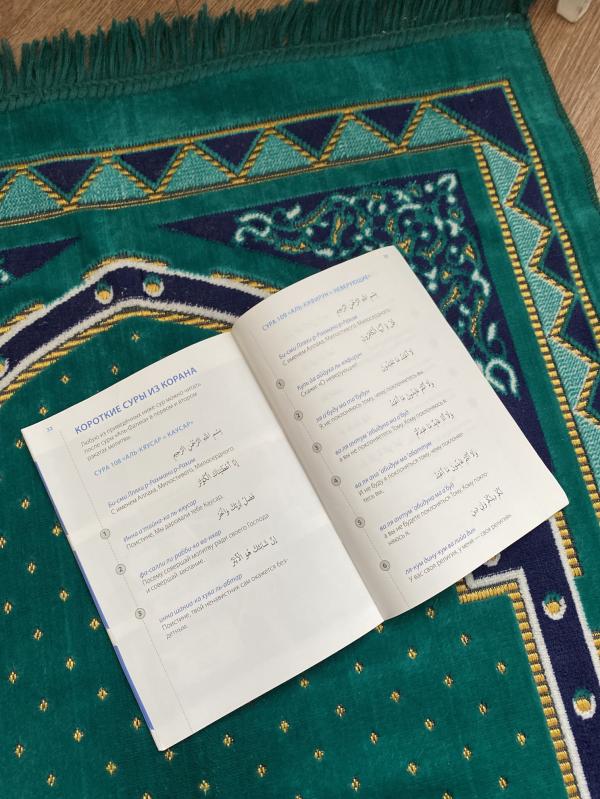 32
КОРОТКИЕ СУРЫ ИЗ КОРАНА
Любую из приведённых ниже сур можно читать
после суры «Аль-Фатиха» в первом и втором
ракатах молитвы.
СУРА 108 «АЛЬ-КЯУСАР» « КАУСАР»
بِسْمِ اللَّهِ الرَّحْمَنِ الرَّحِيمِ
Би-сми Лляхи р-Рахмани р-Рахим
С именем Аллаха, Милостивого, Милосердного.
إِنَّا أَعْطَيْنَاكَ الْكَوْثَرَ
1
Инна а'тайна-ка ль-кяусар
Поистине, Мы даровали тебе Каусар.
فَصَلِّ لِرَبِّكَ وَانْحَرْ
2
фа-салли ли-рабби-ка ва-нхар
Посему совершай молитву ради своего Господа
и совершай заклание.
إِنَّ شَانِئَكَ هُوَ الْأَبْتَرُ
3
инна шаниа-ка хува ль-абтар
Поистине, твой ненавистник сам окажется без-
детным.
СУРА 109 «АЛЬ-КАФИРУН» « НЕВЕРУЮЩИЕ»
بِسْمِ اللَّهِ الرَّحْمَنِ الرَّحِيمِ
Би-сми Лляхи р-Рахмани р-Рахим
С именем Аллаха, Милостивого, Милосердного.
قُلْ يَا أَيُّهَا الْكَافِرُونَ
1
Куль йа аййуха ль-кяфирун
Скажи: «О неверующие!
لَا أَعْبُدُ مَا تَعْبُدُونَ
2
ля а'буду ма та'будун
Я не поклоняюсь тому, чему поклоняетесь вы.
وَلَا أَنْتُمْ عَابِدُونَ مَا أَعْبُدُ
3
ва ля антум 'абидуна ма а'буд
а вы не поклоняетесь Тому, Кому поклоняюсь я.
وَلَا أَنَا عَابِدٌ مَا عَبَدْتُمْ
4
ва ля ана 'абидум ма 'абаттум
И не буду я поклоняться тому, чему поклоняе-
тесь вы.
وَلَا أَنْتُمْ عَابِدُونَ مَا أَعْبُدُ
5
ва ля антум 'абидуна ма а'буд
а вы не будете поклоняться Тому, Кому покло-
няюсь я.
لَكُمْ دِينُكُمْ وَلِيَ دِينِ
6
ля-кум дину-кум ва лийа дин
У вас своя религия, у меня — своя религия».